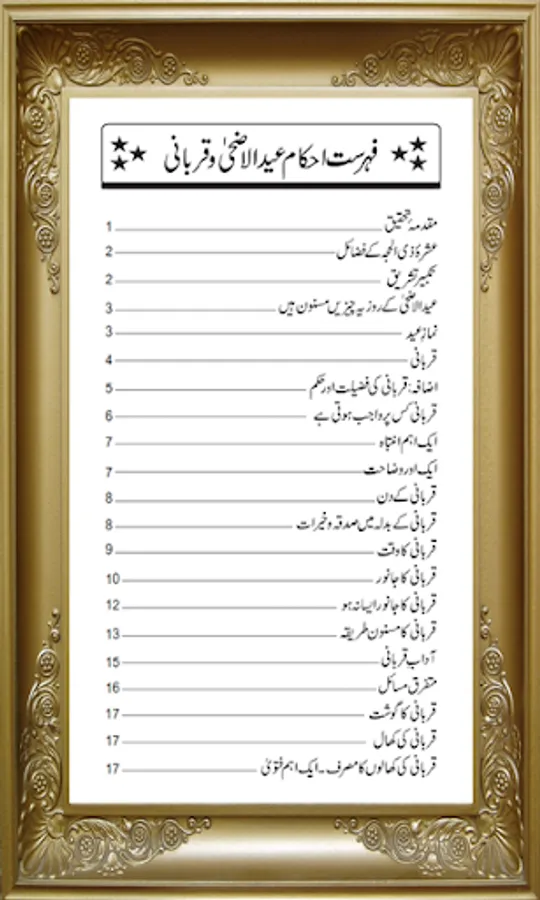 فہرست احکام عید الاضحیٰ و قربانی
مقدمہ تحقیق 1
عشرۂ ذی الحجہ کے فضائل 2
تکبیر تشریق 2
عید الاضحیٰ کے روز یہ چیزیں مسنون ہیں 3
نماز عید 3
قربانی 4
اضافہ: قربانی کی فضیلت اور حکم 5
قربانی کس پر واجب ہوتی ہے 6
ایک اہم انتباہ 7
ایک اور وضاحت 7
قربانی کے دن 8
قربانی کے بدلہ میں صدقہ و خیرات 8
قربانی کا وقت 9
قربانی کا جانور 10
قربانی کا جانور ایسا نہ ہو 12
قربانی کا مسنون طریقہ 13
آداب قربانی 15
متفرق مسائل 16
قربانی کا گوشت 17
قربانی کی کھال 17
قربانی کی کھالوں کا مصرف۔ ایک اہم فتویٰ 17